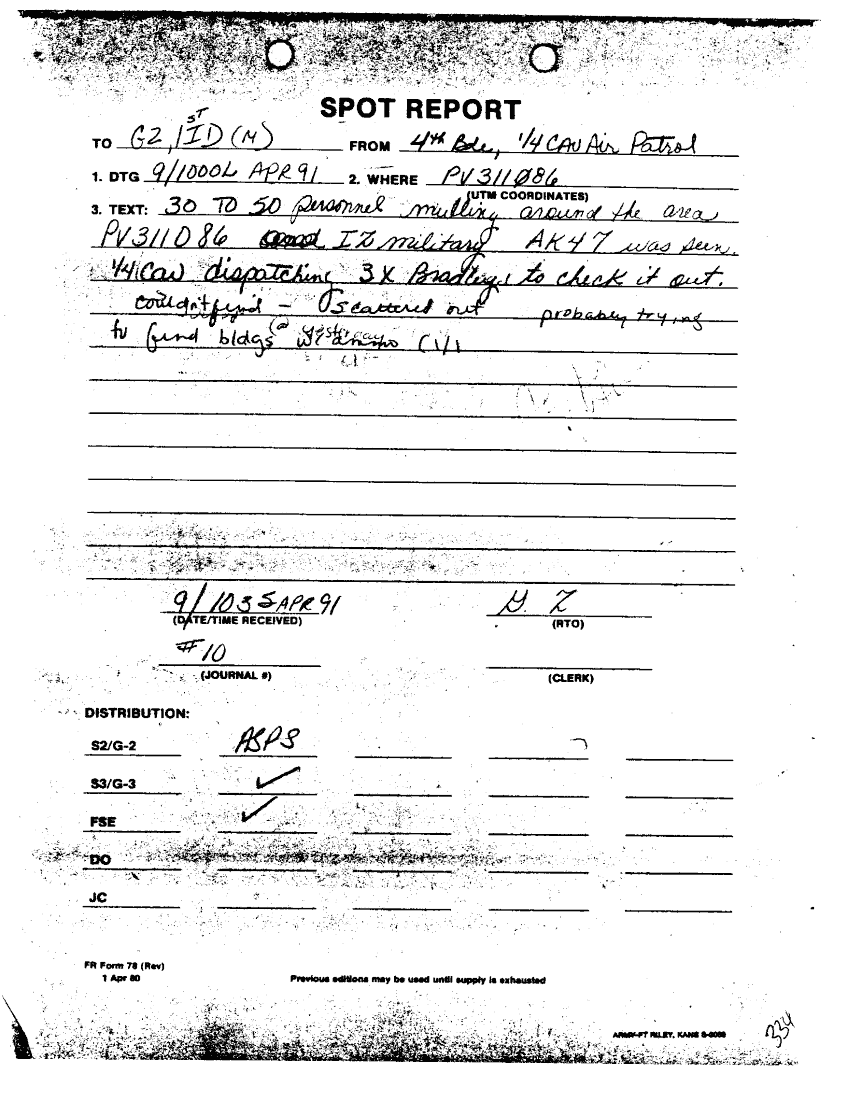 SPOT REPORT
TO G2, 1ST ID (M) FROM 4th Bde, 1/4 CAV Air Patrol
1. DTG 9/1000L APR 91 2. WHERE PV311086
(UTM COORDINATES)
3. TEXT: 30 TO 50 personnel mulling around the area
PV311086 IZ military AK47 was seen.
1/4 Cav dispatching 3 X Bradleys to check it out.
couldn't find - scattered out probably trying
to find bldgs w/ ammo
9/1035 APR 91
(DATE/TIME RECEIVED) (RTO)
#10
(JOURNAL #) (CLERK)
DISTRIBUTION:
S2/G-2 ASPS
S3/G-3 ✓
FSE ✓
DO
JC
FR Form 78 (Rev)
1 Apr 80 Previous editions may be used until supply is exhausted
ARMY-FT RILEY, KANS
334